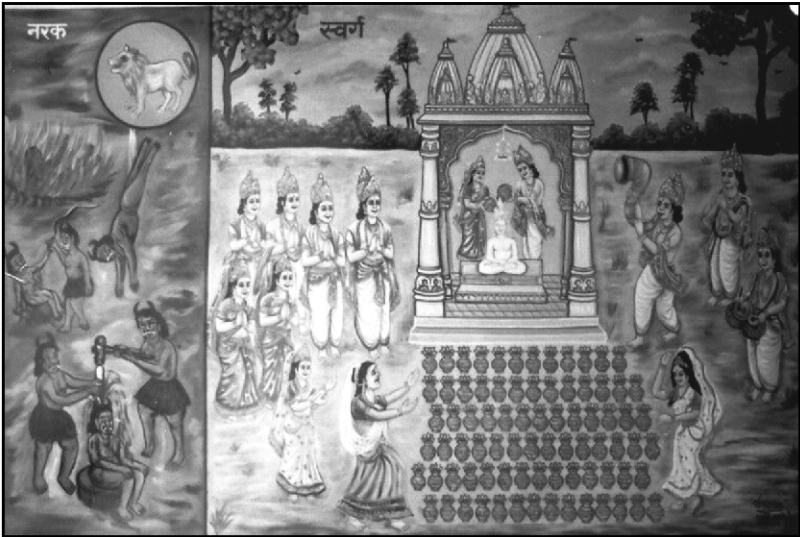 नरक
स्वर्ग